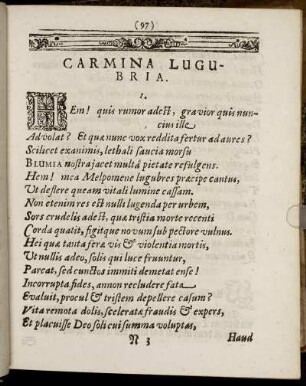 (97)
CARMINA LUGU-
BRIA.
I.
HEm! quis rumor adest, gravior quis nun-
cius ille
Advolat? Et qua nunc vox reddita fertur ad aures?
Scilicet exanimis, lethali saucia morsu
BLUMIA nostra jacet multâ pietate refulgens.
Hem! mea Melpomene lugubres præcipe cantus,
Ut deflere queam vitali lumine cassam.
Non etenim res est nulli lugenda per urbem,
Sors crudelis adest, qua tristia morte recenti
Corda quatit, figitque novum sub pectore vulnus.
Hei quæ tanta fera vis & violentia mortis,
Ut nullis adeo, solis qui luce fruuntur,
Parcat, sed cunctos immiti demetat ense!
Incorrupta fides, annon recludere fata
Evaluit, procul & tristem depellere casum?
Vita remota dolis, sceleratæ fraudis & expers,
Et placuisse Deo soli cui summa voluptas,
N 3 Haud